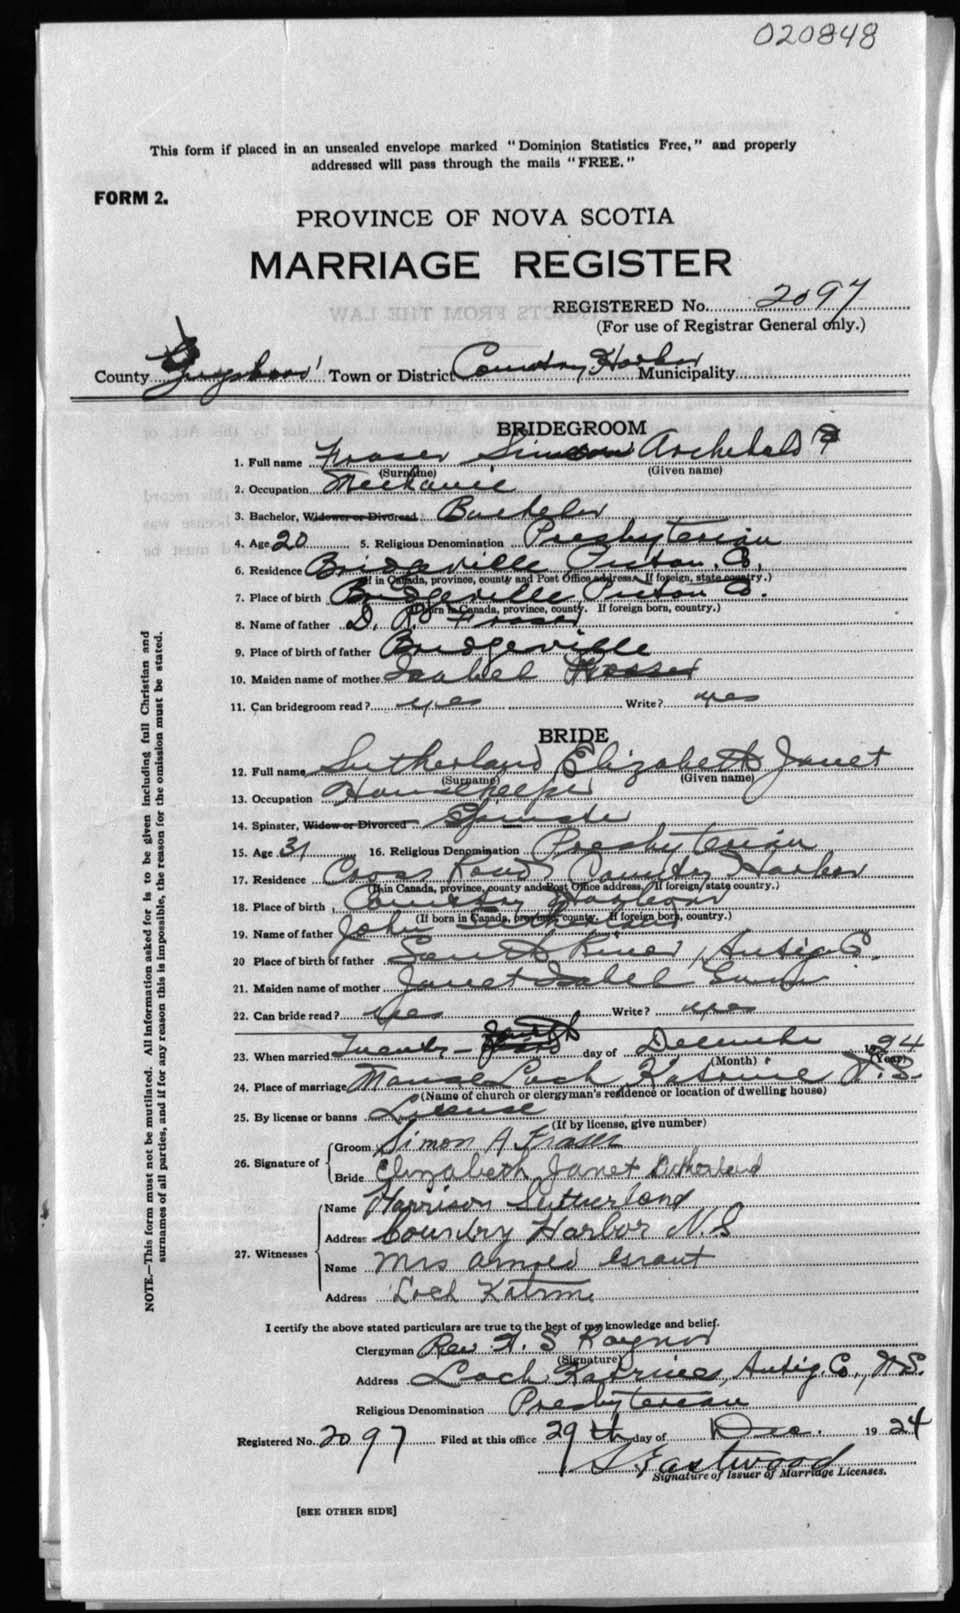 020848
This form if placed in an unsealed envelope marked "Dominion Statistics Free," and properly
addressed will pass through the mails "FREE."
FORM 2.
PROVINCE OF NOVA SCOTIA
MARRIAGE REGISTER
REGISTERED No. 2097
(For use of Registrar General only.)
County Guysboro' Town or District Country Harbor Municipality
BRIDEGROOM
1. Full name Fraser Simeon Archibald
(Surname) (Given name)
2. Occupation Mechanic
3. Bachelor, Widower or Divorced Bachelor
4. Age 20 5. Religious Denomination Presbyterian
6. Residence Bridgeville Pictou Co.
(If in Canada, province, county and Post Office address. If foreign, state country.)
7. Place of birth Bridgeville Pictou Co.
(If born in Canada, province, county. If foreign born, country.)
8. Name of father D. R. Fraser
9. Place of birth of father Bridgeville
10. Maiden name of mother Isabel Fraser
11. Can bridegroom read? yes Write? yes
BRIDE
12. Full name Sutherland Elizabeth Janet
(Surname) (Given name)
13. Occupation Housekeeper
14. Spinster, Widow or Divorced Spinster
15. Age 31 16. Religious Denomination Presbyterian
17. Residence Cross Roads Country Harbor
(If in Canada, province, county and Post Office address. If foreign, state country.)
18. Place of birth Country Harbour
(If born in Canada, province, county. If foreign born, country.)
19. Name of father John Sutherland
20 Place of birth of father South River, Antig Co.
21. Maiden name of mother Janet Isabel
22. Can bride read? yes Write? yes
23. When married Twenty-fourth day of December 1924
(Month) (Year)
24. Place of marriage Manse Loch Katrine N.S.
(Name of church or clergyman's residence or location of dwelling house)
25. By license or banns License
(If by license, give number)
26. Signature of Groom Simon A Fraser
Bride Elizabeth Janet Sutherland
27. Witnesses Name Harrison Sutherland
Address Country Harbor N.S
Name Mrs Arnold Grant
Address Loch Katrine
I certify the above stated particulars are true to the best of my knowledge and belief.
Clergyman Rev. A. S Raynor
(Signature)
Address Loch Katrine, Antig. Co., N.S.
Religious Denomination Presbyterian
Registered No. 2097 Filed at this office 29th day of Dec. 1924
S Eastwood
Signature of Issuer of Marriage Licenses.
[SEE OTHER SIDE]
NOTE.—This form must not be mutilated. All information asked for is to be given including full Christian and
surnames of all parties, and if for any reason this is impossible, the reason for the omission must be stated.